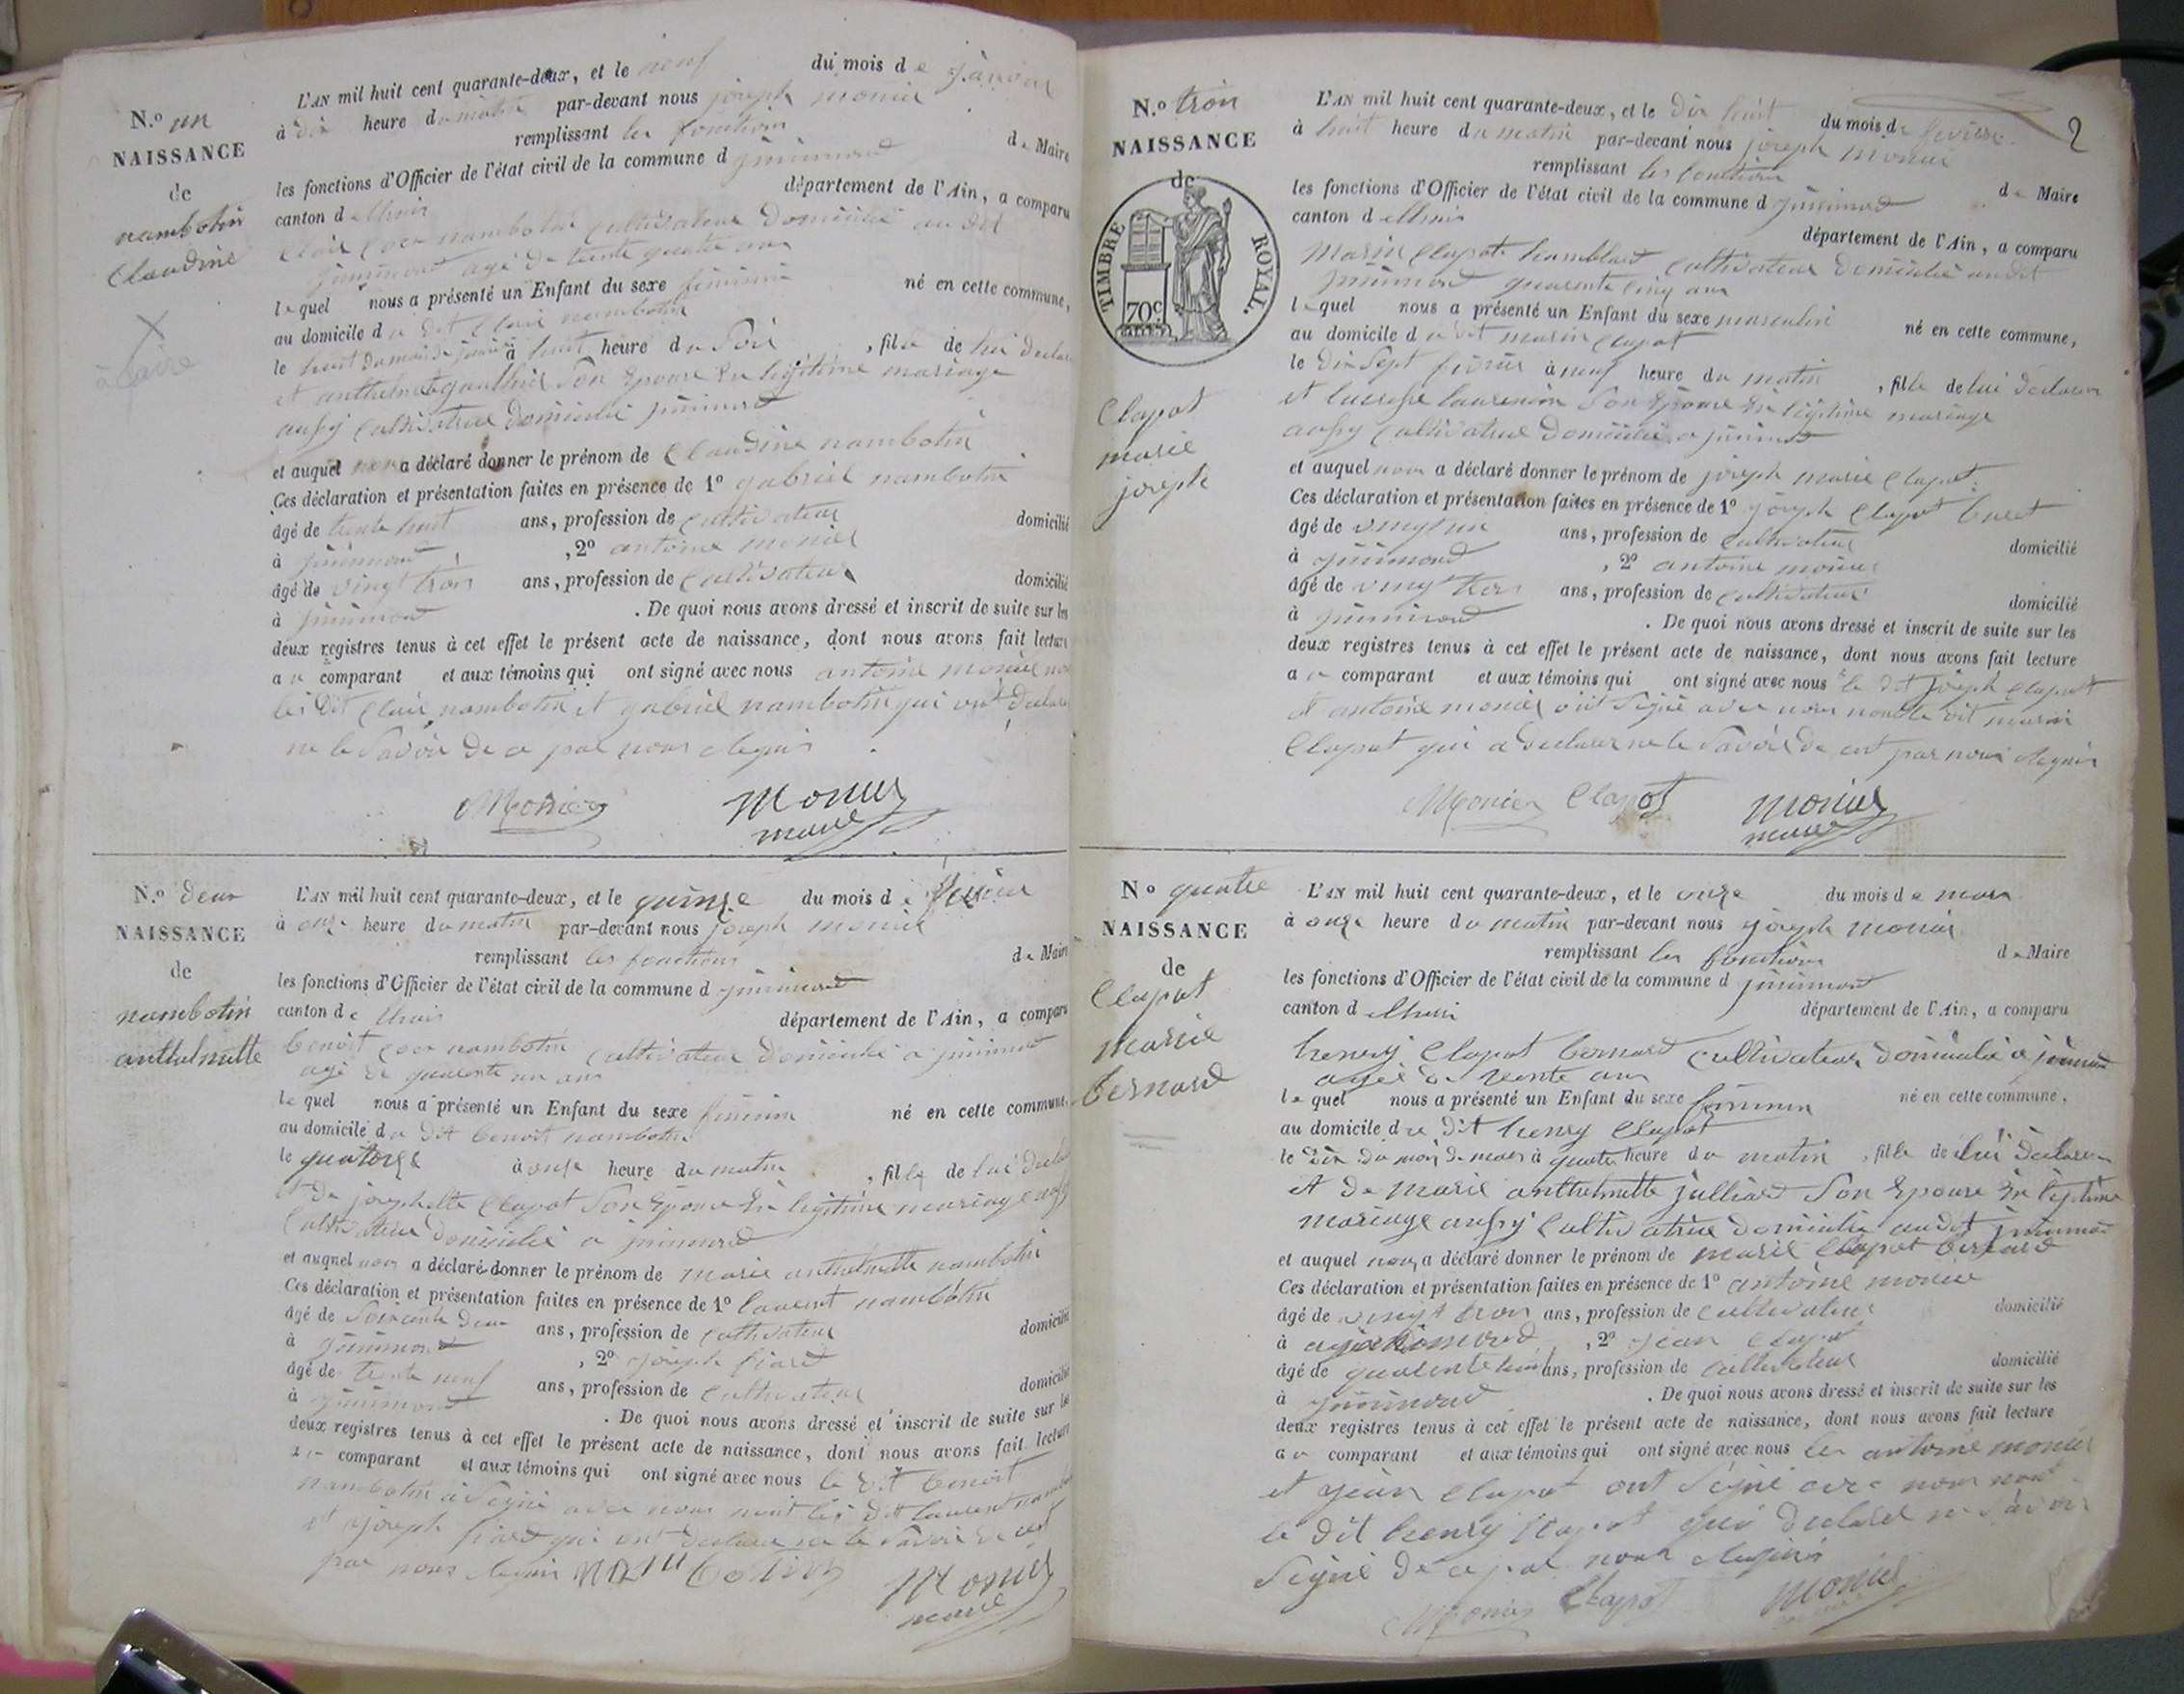 N.o un
NAISSANCE
de
nambotin
Claudine
à Caire
L'AN mil huit cent quarante-deux, et le neuf du mois de janvier
à dix heure du matin par-devant nous joseph monier
remplissant les fonctions de Maire
les fonctions d'Officier de l'état civil de la commune d jninimond
canton de lhuis département de l'Ain, a comparu
Clair nambotin cultivateur domicilié au dit
âgé de trente quatre ans
lequel nous a présenté un Enfant du sexe féminin né en cette commune,
au domicile du dit Clair nambotin
le huit du mois de janvier à huit heure du soir, fille de lui declarant
et anthelmette gauthier son epouse en légitime mariage
aussy cultivatrice domicilié
et auquel nous a déclaré donner le prénom de Claudine nambotin
Ces déclaration et présentation faites en présence de 1o gabriel nambotin
âgé de trente huit ans, profession de cultivateur domicilié
à, 2o antoine monier
âgé de vingt trois ans, profession de cultivateur domicilié
à. De quoi nous avons dressé et inscrit de suite sur les
deux registres tenus à cet effet le présent acte de naissance, dont nous avons fait lecture
au comparant et aux témoins qui ont signé avec nous antoine monier non
les dit Clair nambotin et gabriel nambotin qui ont declaré
ne le savoir de ce par nous requis
Monier Monier
maire
N.o deux
NAISSANCE
de
nambotin
anthelmette
L'AN mil huit cent quarante-deux, et le quinze du mois de fevrier
à onze heure du matin par-devant nous joseph monier
remplissant les fonctions de Maire
les fonctions d'Officier de l'état civil de la commune d
canton de lhuis département de l'Ain, a comparu
benoit nambotin cultivateur domicilié a
agé de quarente un ans
lequel nous a présenté un Enfant du sexe féminin né en cette commune,
au domicile du dit benoit nambotin
le quatorze à onze heure du matin, fille de lui declarant
et de josephette Clapot son epouse en légitime mariage aussy
cultivatrice domicilié a
et auquel nous a déclaré donner le prénom de marie anthelmette nambotin
Ces déclaration et présentation faites en présence de 1o laurent nambotin
âgé de soixente deux ans, profession de cultivateur domicilié
à, 2o joseph fiard
âgé de trente neuf ans, profession de cultivateur domicilié
à. De quoi nous avons dressé et inscrit de suite sur les
deux registres tenus à cet effet le présent acte de naissance, dont nous avons fait lecture
au comparant et aux témoins qui ont signé avec nous le dit benoit
nambotin a signé avec nous nont les dit laurent nambotin
et joseph fiard qui ont declaré ne le savoir de cet
par nous requis nambotin Monier
maire
2
N.o trois
NAISSANCE
de
TIMBRE ROYAL.
70c
Clapot
marie
joseph
L'AN mil huit cent quarante-deux, et le dix huit du mois de fevrier
à huit heure du matin par-devant nous joseph monier
remplissant les fonctions de Maire
les fonctions d'Officier de l'état civil de la commune d
canton de lhuis département de l'Ain, a comparu
marin Clapot cultivateur domicilié audit
quarente cinq ans
lequel nous a présenté un Enfant du sexe masculin né en cette commune,
au domicile du dit marin Clapot
le dix sept fevrier à neuf heure du matin, fille de lui declarant
et son epouse en légitime mariage
aussy cultivatrice domicilié a
et auquel nous a déclaré donner le prénom de joseph marie Clapot
Ces déclaration et présentation faites en présence de 1o joseph Clapot
âgé de vingt un ans, profession de cultivateur domicilié
à, 2o antoine monier
âgé de vingt trois ans, profession de cultivateur domicilié
à. De quoi nous avons dressé et inscrit de suite sur les
deux registres tenus à cet effet le présent acte de naissance, dont nous avons fait lecture
au comparant et aux témoins qui ont signé avec nous le dit joseph Clapot
et antoine monier ont signé avec nous non le dit marin
Clapot qui a declarer ne le savoir de cet par nous requis
Monier Clapot Monier
maire
No quatre
NAISSANCE
de
Clapot
marie
bernard
L'AN mil huit cent quarante-deux, et le onze du mois de mars
à onze heure du matin par-devant nous joseph monier
remplissant les fonctions de Maire
les fonctions d'Officier de l'état civil de la commune d
canton de lhuis département de l'Ain, a comparu
henry Clapot bernard cultivateur domicilié a
agé de trente ans
lequel nous a présenté un Enfant du sexe féminin né en cette commune,
au domicile du dit henry Clapot
le dix du mois de mars à quatre heure du matin, fille de lui declarant
et de marie anthelmette julliard son epouse en légitime
mariage aussy cultivatrice domicilié audit
et auquel nous a déclaré donner le prénom de marie Clapot bernard
Ces déclaration et présentation faites en présence de 1o antoine monier
âgé de vingt trois ans, profession de cultivateur domicilié
à, 2o jean Clapot
âgé de quarente ans, profession de cultivateur domicilié
à. De quoi nous avons dressé et inscrit de suite sur les
deux registres tenus à cet effet le présent acte de naissance, dont nous avons fait lecture
au comparant et aux témoins qui ont signé avec nous les antoine monier
et jean Clapot ont signé avec nous non
le dit henry Clapot qui declaré ne savoir
signé de ce par nous requis
Monier Clapot Monier